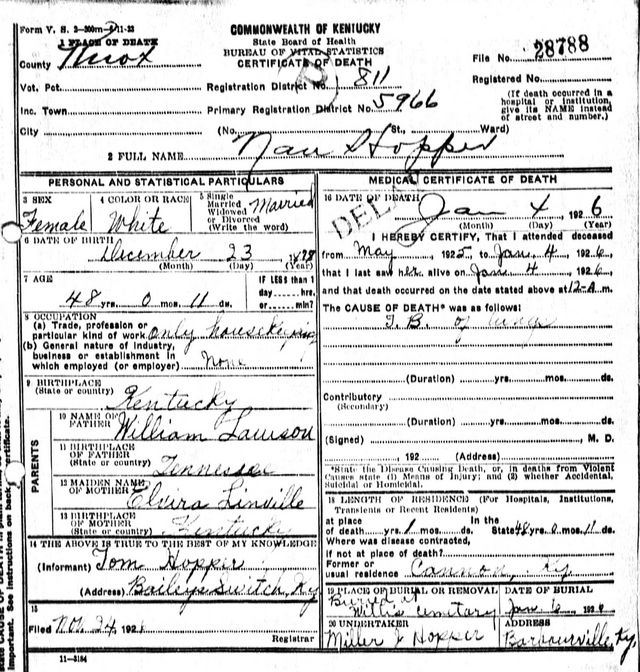 Form V. S. 2-300m-4-11-23
1 PLACE OF DEATH
County Knox
Vot. Pct.
Inc. Town
City
COMMONWEALTH OF KENTUCKY
State Board of Health
BUREAU OF VITAL STATISTICS
CERTIFICATE OF DEATH
Registration District No. 811
Primary Registration District No. 5966
(No. St., Ward)
File No. 28788
Registered No.
(If death occurred in a
hospital or institution,
give its NAME instead
of street and number.)
2 FULL NAME Nan Hopper
PERSONAL AND STATISTICAL PARTICULARS
3 SEX
Female
4 COLOR OR RACE
White
5 Single
Married
Widowed
or Divorced
(Write the word)
Married
6 DATE OF BIRTH
December 23
(Month) (Day) (Year)
7 AGE
48 yrs. 0 mos. 11 ds.
IF LESS than 1
day hrs.
or min?
8 OCCUPATION
(a) Trade, profession or
particular kind of work only housekeeping
(b) General nature of industry,
business or establishment in
which employed (or employer) None
9 BIRTHPLACE
(State or country)
Kentucky
PARENTS
10 NAME OF
FATHER
William Lawson
11 BIRTHPLACE
OF FATHER
(State or country)
Tennessee
12 MAIDEN NAME
OF MOTHER
Elvira Linville
13 BIRTHPLACE
OF MOTHER
(State or country)
Kentucky
14 THE ABOVE IS TRUE TO THE BEST OF MY KNOWLEDGE
(Informant) Tom Hopper
(Address) Baileys Switch, Ky
15
Filed Nov. 24, 192
Registrar
11-3184
MEDICAL CERTIFICATE OF DEATH
16 DATE OF DEATH
DEL
Jan 4, 1926
(Month) (Day) (Year)
I HEREBY CERTIFY, That I attended deceased
from May, 1925, to Jan. 4, 1926,
that I last saw her alive on Jan. 4, 1926,
and that death occurred on the date stated above at 12-A.m.
The CAUSE OF DEATH* was as follows:
T.B. of lungs
(Duration) yrs. mos. ds.
Contributory
(Secondary)
(Duration) yrs. mos. ds.
(Signed) , M. D.
, 192 (Address)
*State the Disease Causing Death, or, in deaths from Violent
Causes state (1) Means of Injury; and (2) whether Accidental,
Suicidal or Homicidal.
18 LENGTH OF RESIDENCE (For Hospitals, Institutions,
Transients or Recent Residents)
at place
of death yrs. 1 mos. ds. In the State 48 yrs. 0 mos. 11 ds.
Where was disease contracted,
if not at place of death?
Former or
usual residence Cannon, Ky
19 PLACE OF BURIAL OR REMOVAL
Burial at
Willis cemetary
DATE OF BURIAL
Jan 6, 1926
20 UNDERTAKER
Miller J Hopper
ADDRESS
Barbourville, Ky.
important. See instructions on back of certificate.